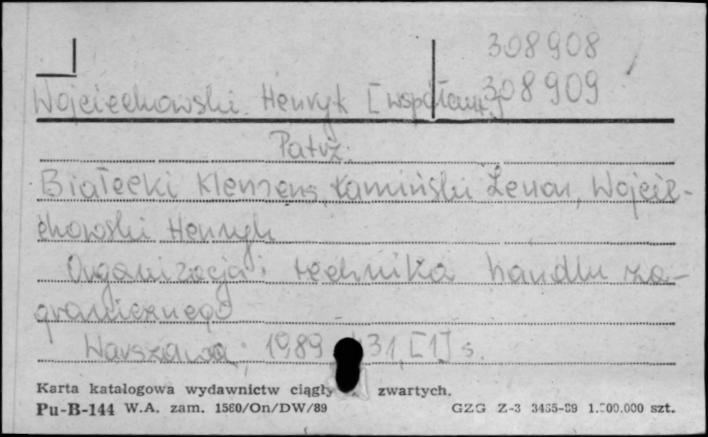 308908
308909
Wojciechowski Henryk [współaut.]
Patrz:
Białecki Klemens, Kamiński Zenon, Wojcie-
chowski Henryk
Organizacja i technika handlu za-
granicznego
Warszawa; 1989 31, [1] s.
Karta katalogowa wydawnictw ciągły zwartych.
Pu-B-144 W.A. zam. 1560/On/DW/89 GZG Z-3 3435-89 1.500.000 szt.